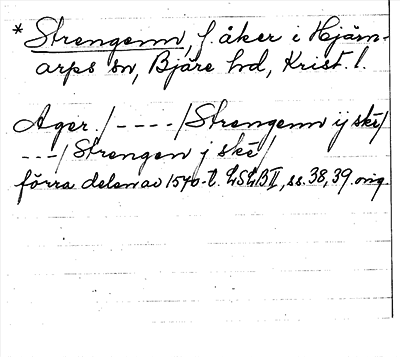 * Strengenn, f. åker i Hjärn-
arps sn, Bjäre hd, Krist. l.
Ager. /----/ Strengenn ij skē/
---/ Strengen j skē/
förra delen av 1570-t. LSLB II, ss. 38, 39. orig.